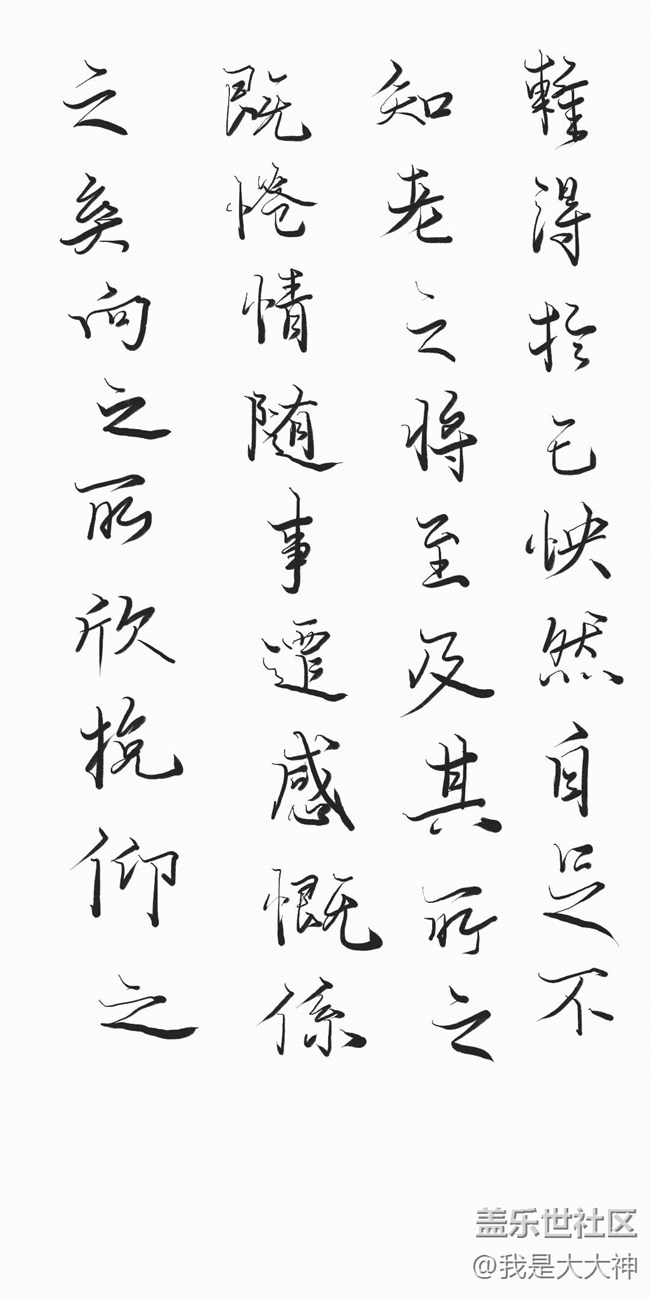 得扵己怏然自足不
知老之将至及其所之
既惓情随事遷感慨係
之矣向之所欣挽仰之
盖乐世社区
@我是大大神